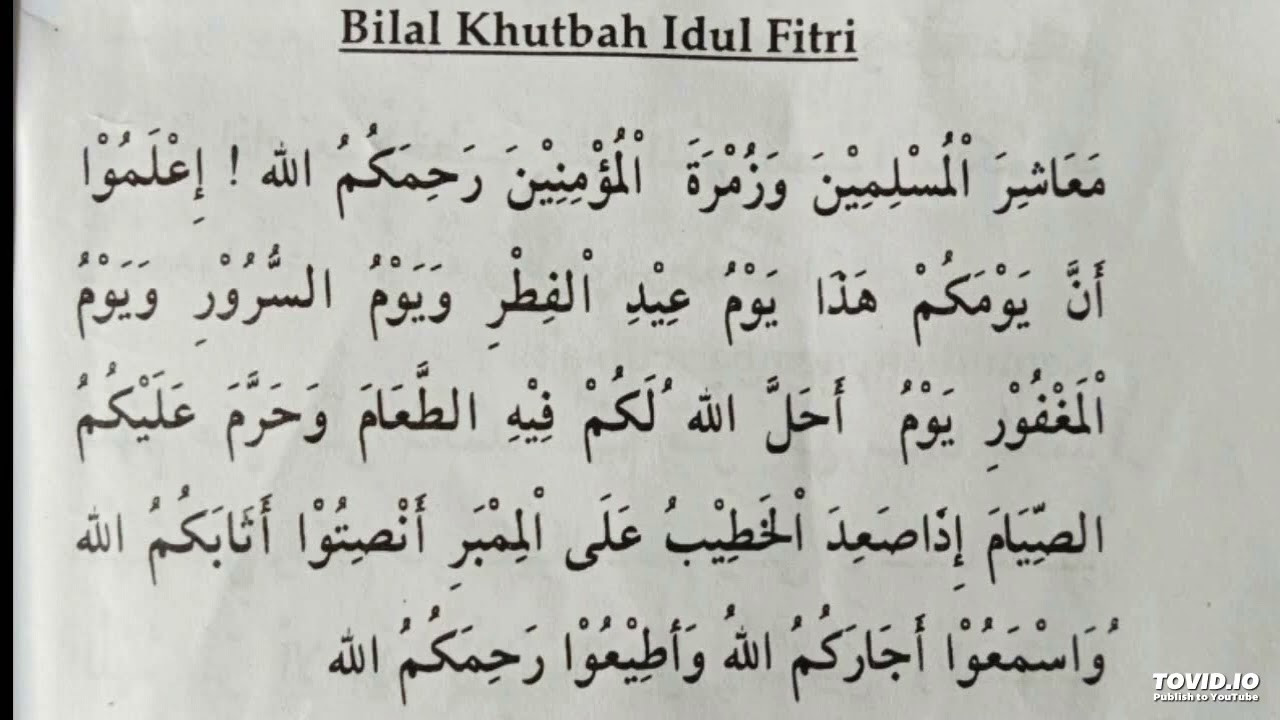 Bilal Khutbah Idul Fitri
مَعَاشِرَ الْمُسْلِمِيْنَ وَزُمْرَةَ الْمُؤْمِنِيْنَ رَحِمَكُمُ الله ! إِعْلَمُوْا
أَنَّ يَوْمَكُمْ هَذَا يَوْمُ عِيْدِ الْفِطْرِ وَيَوْمُ السُّرُوْرِ وَيَوْمُ
الْمَغْفُوْرِ يَوْمُ أَحَلَّ اللهُ لَكُمْ فِيْهِ الطَّعَامَ وَحَرَّمَ عَلَيْكُمُ
الصِّيَامَ إِذَاصَعِدَ الْخَطِيْبُ عَلَى الْمِمْبَرِ أَنْصِتُوْا أَثَابَكُمُ الله
ُوَاسْمَعُوْا أَجَارَكُمُ اللهُ وَأَطِيْعُوْا رَحِمَكُمُ الله
TOVID.IO
Publish to YouTube